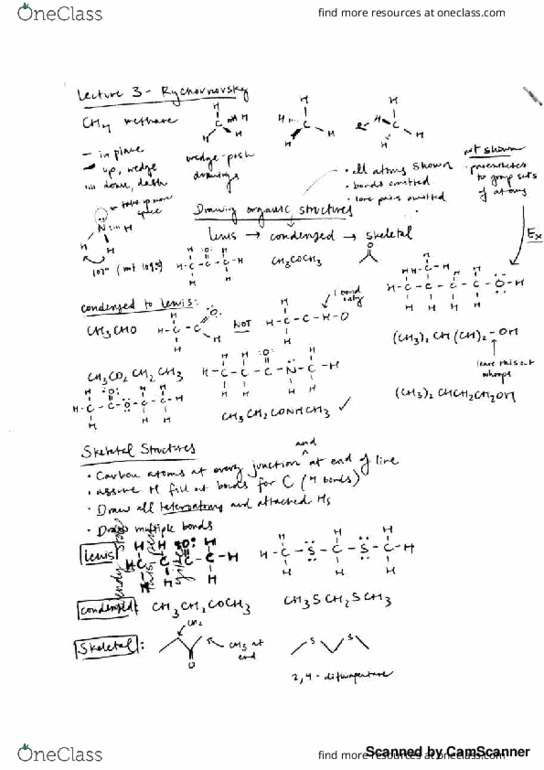 OneClass
find more resources at oneclass.com
Lecture 3 - Rychnovsky
CH4 methane
— in plane
up, wedge
down, dash
wedge-
drawings
take up more
space
107° (not 109.5°)
not shown
parentheses
to group sets
of atoms
• all atoms shown
• bonds omitted
• lone pairs omitted
Drawing organic structures
Lewis → condensed → skeletal
CH3COCH3
Ex
condensed to Lewis:
CH3CHO
NOT
1 bond
only
(CH3)2 CH (CH)2 - OH
leave this out
whoops
(CH3)2 CHCH2CH2OH
CH3CO2CH2CH3
CH3CH2CONHCH3 ✓
Skeletal Structures
• Carbon atoms at every junction and at end of line
• assume H fill out bonds for C (4 bonds)
• Draw all heteroatoms and attached Hs
• Draw multiple bonds
Lewis
condensed:
CH3CH2COCH3
CH3SCH2SCH3
Skeletal:
CH2
CH3 at
end
O
S
S
2,4-
Scanned by CamScanner
OneClass
find more resources at oneclass.com